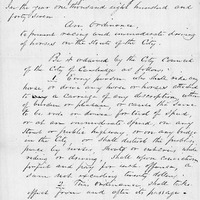 In the year one thousand eight hundred and
forty seven
An Ordinance,
To prevent racing and immoderate driving
of horses in the Streets of the City.
Be it ordained by the City Council
of the City of Cambridge as follows
1. Every person who shall ride a
horse or drive any horse or horses attached
to a Carriage of any description, either
of burden or pleasure, or cause the same
to be rode or driven for trial of speed,
or at an immoderate speed, on any
Street or public highway, or on any bridge
in the City, shall disturb the public
peace
riding or driving shall upon conviction
forfeit and pay for each offence, a
sum not exceeding twenty dollars.
2. This Ordinance shall take
effect from and after its passage.